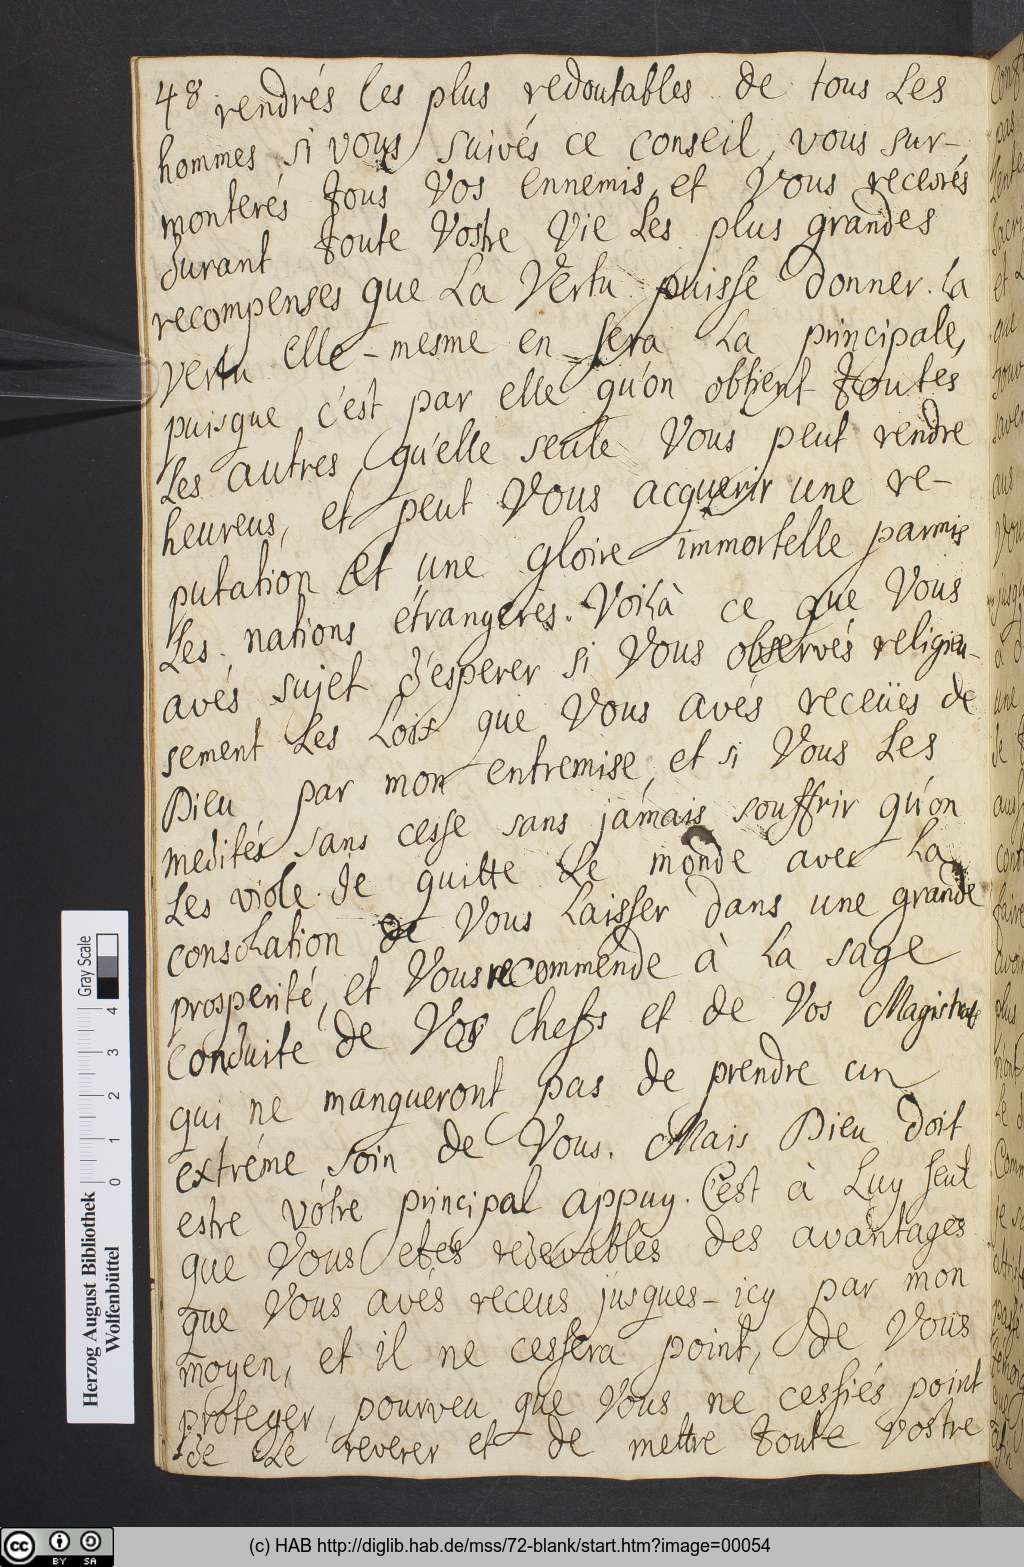 48 rendrés les plus redoutables de tous Les
hommes, si vous suivés ce conseil, vous sur-
monterés tous Vos ennemis, et Vous recevrés
durant toute Vostre Vie Les plus grandes
recompenses que La Vertu puisse donner. La
Vertu elle-mesme en sera La principale,
puisque c'est par elle qu'on obtient toutes
Les autres, qu'elle seule Vous peut rendre
heureus, et peut Vous acquerir une re-
putation et une gloire immortelle parmis
Les nations étrangeres. Voilà ce que Vous
avés sujet d'esperer si Vous observés religieu-
sement Les Loix que Vous avés receües de
Dieu par mon entremise, et si Vous Les
medités sans cesse sans jámais souffrir qu'on
Les viole. Je quitte Le monde avec La
consolation de Vous Laisser dans une grande
prosperité, et Vous recommende à La sage
Conduite de Vos Chefs et de Vos Magistrats
qui ne manqueront pas de prendre un
extréme soin de Vous. Mais Dieu doit
estre vótre principal appuy. C'est à Luy seul
que Vous etes redevables des avantages
que Vous avés receus jusques-icy par mon
moyen, et il ne cessera point, de Vous
proteger, pourveu que Vous ne cessiés point
de Le reverer et de mettre toute vostre
Herzog August Bibliothek
Wolfenbüttel
Gray Scale
0 1 2 3 4
CC BY SA
(c) HAB http://diglib.hab.de/mss/72-blank/start.htm?image=00054